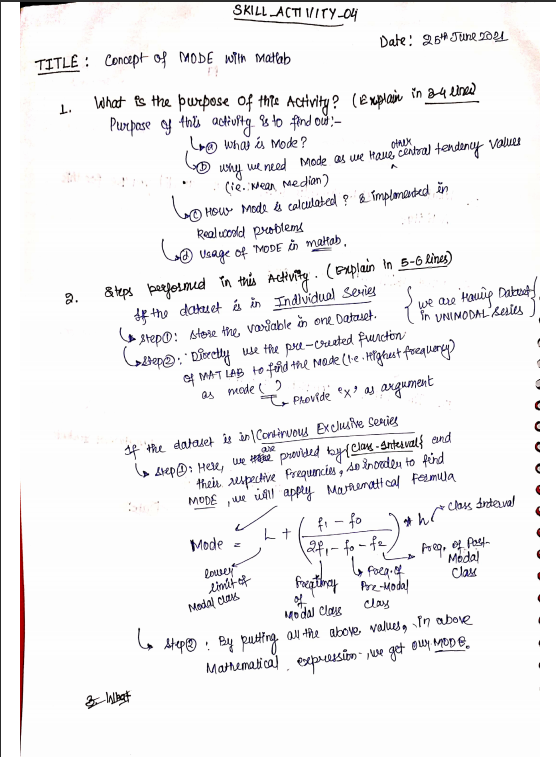 SKILL_ACTIVITY_04
Date: 25th June 2021
TITLE: Concept of MODE with Matlab
1. What is the purpose of this Activity? (Explain in 3-4 lines)
Purpose of this activity is to find out:-
(a) What is Mode?
(b) why we need Mode as we have other central tendency values
(i.e. Mean, Median)
(c) How Mode is calculated? & implemented in
Real world problems
(d) Usage of MODE in matlab.
2. Steps performed in this Activity. (Explain in 5-6 lines)
If the dataset is in Individual Series
{ we are Having Dataset
in UNIMODAL Series }
Step①: store the variable in one Dataset.
Step②: Directly use the pre-created function
of MATLAB to find the Mode (i.e. Highest frequency)
as mode ( )
Provide "x" as argument
If the dataset is in Continuous Exclusive Series
Step①: Here, we are provided by {Class-Interval} and
their respective Frequencies, so inorder to find
MODE, we will apply Mathematical Formula
Mode = L + ( f1 - f0 / 2f1 - f0 - f2 ) * h
Class Interval
Lower
limit of
Modal class
Frequency
of
Modal Class
Freq. of
Pre-Modal
Class
Freq. of Post-
Modal
Class
Step②: By putting all the above values, in above
Mathematical expression, we get our MODE.
3. What